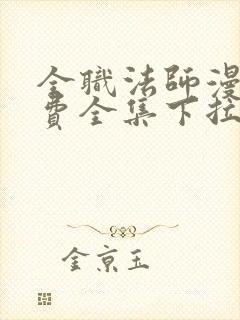 全職法師漫
費全集下拉
金京玉